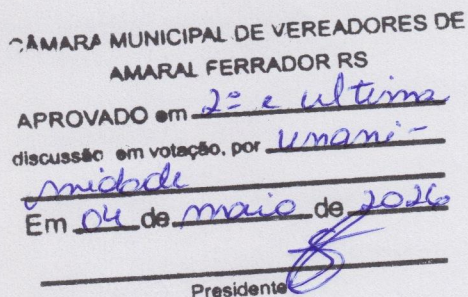 CÂMARA MUNICIPAL DE VEREADORES DE
AMARAL FERRADOR RS
APROVADO em 2ª e ultima
discussão em votação, por unani-
midade
Em 04 de maio de 2026
Presidente